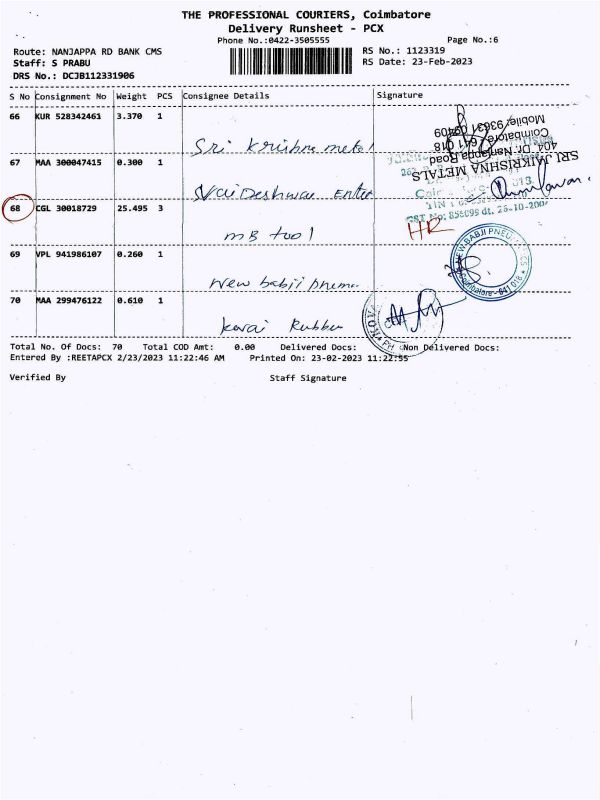 THE PROFESSIONAL COURIERS, Coimbatore
Delivery Runsheet - PCX
Phone No.:0422-3505555
Page No.:6
Route: NANJAPPA RD BANK CMS
RS No.: 1123319
Staff: S PRABU
RS Date: 23-Feb-2023
DRS No.: DCJB112331906
S No Consignment No Weight PCS Consignee Details Signature
66 KUR 528342461 3.370 1
Sri Krishna metal
SRI JAIKRISHNA METALS
404, Dr. Nanjappa Road
Coimbatore - 641 018
Mobile: 93631 09409
67 MAA 300047415 0.300 1
Vaideshwar Enter
GST No: 856099 dt. 26-10-2007
68 CGL 30018729 25.495 3
MB tool
HR
69 VPL 941986107 0.260 1
New babji pnema
NEW BABJI PNEU
Coimbatore - 641 018
70 MAA 299476122 0.610 1
Kovai Rubber
Total No. Of Docs: 70 Total COD Amt: 0.00 Delivered Docs: Non Delivered Docs:
Entered By :REETAPCX 2/23/2023 11:22:46 AM Printed On: 23-02-2023 11:22:55
Verified By Staff Signature